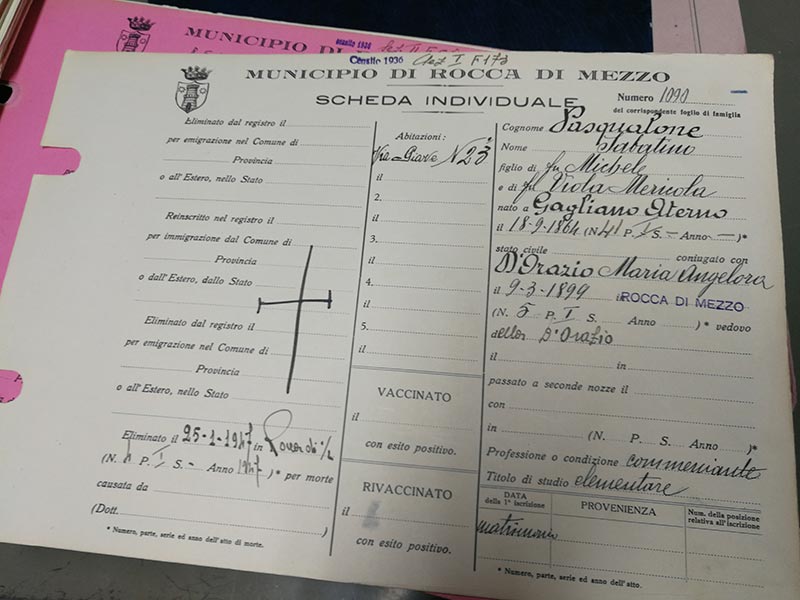 Censito 1936
MUNICIPIO DI
Censito 1936 Sez I F 173
MUNICIPIO DI ROCCA DI MEZZO
SCHEDA INDIVIDUALE
Numero 1090
del corrispondente foglio di famiglia
Eliminato dal registro il
per emigrazione nel Comune di
Provincia
o all'Estero, nello Stato
Reinscritto nel registro il
per immigrazione dal Comune di
Provincia
o dall'Estero, dallo Stato
Eliminato dal registro il
per emigrazione nel Comune di
Provincia
o all'Estero, nello Stato
Eliminato il 25-1-1947 in
(N. P. I S. - Anno 1947 )* per morte
causata da
(Dott. )
* Numero, parte, serie ed anno dell'atto di morte.
Abitazioni:
Via Piave N 23
il
2.
il
3.
il
4.
il
5.
il
VACCINATO
il
con esito positivo.
RIVACCINATO
il
con esito positivo.
Cognome Pasqualone
Nome Sabatino
figlio di fu Michele
e di fu Viola Mericola
nato a Gagliano Aterno
il 18-9-1864 (N 41 P. I S. - Anno - )*
stato civile coniugato con
D'Orazio Maria Angelora
il 9-3-1899 ROCCA DI MEZZO
(N. 5 P. I S. Anno )* vedovo
della D'Orazio
il in
passato a seconde nozze il
con
in (N. P. S. Anno )*
Professione o condizione commerciante
Titolo di studio elementare
DATA della 1ª iscrizione PROVENIENZA Num. della posizione relativa all'iscrizione
matrimonio
* Numero, parte, serie ed anno dell'atto.